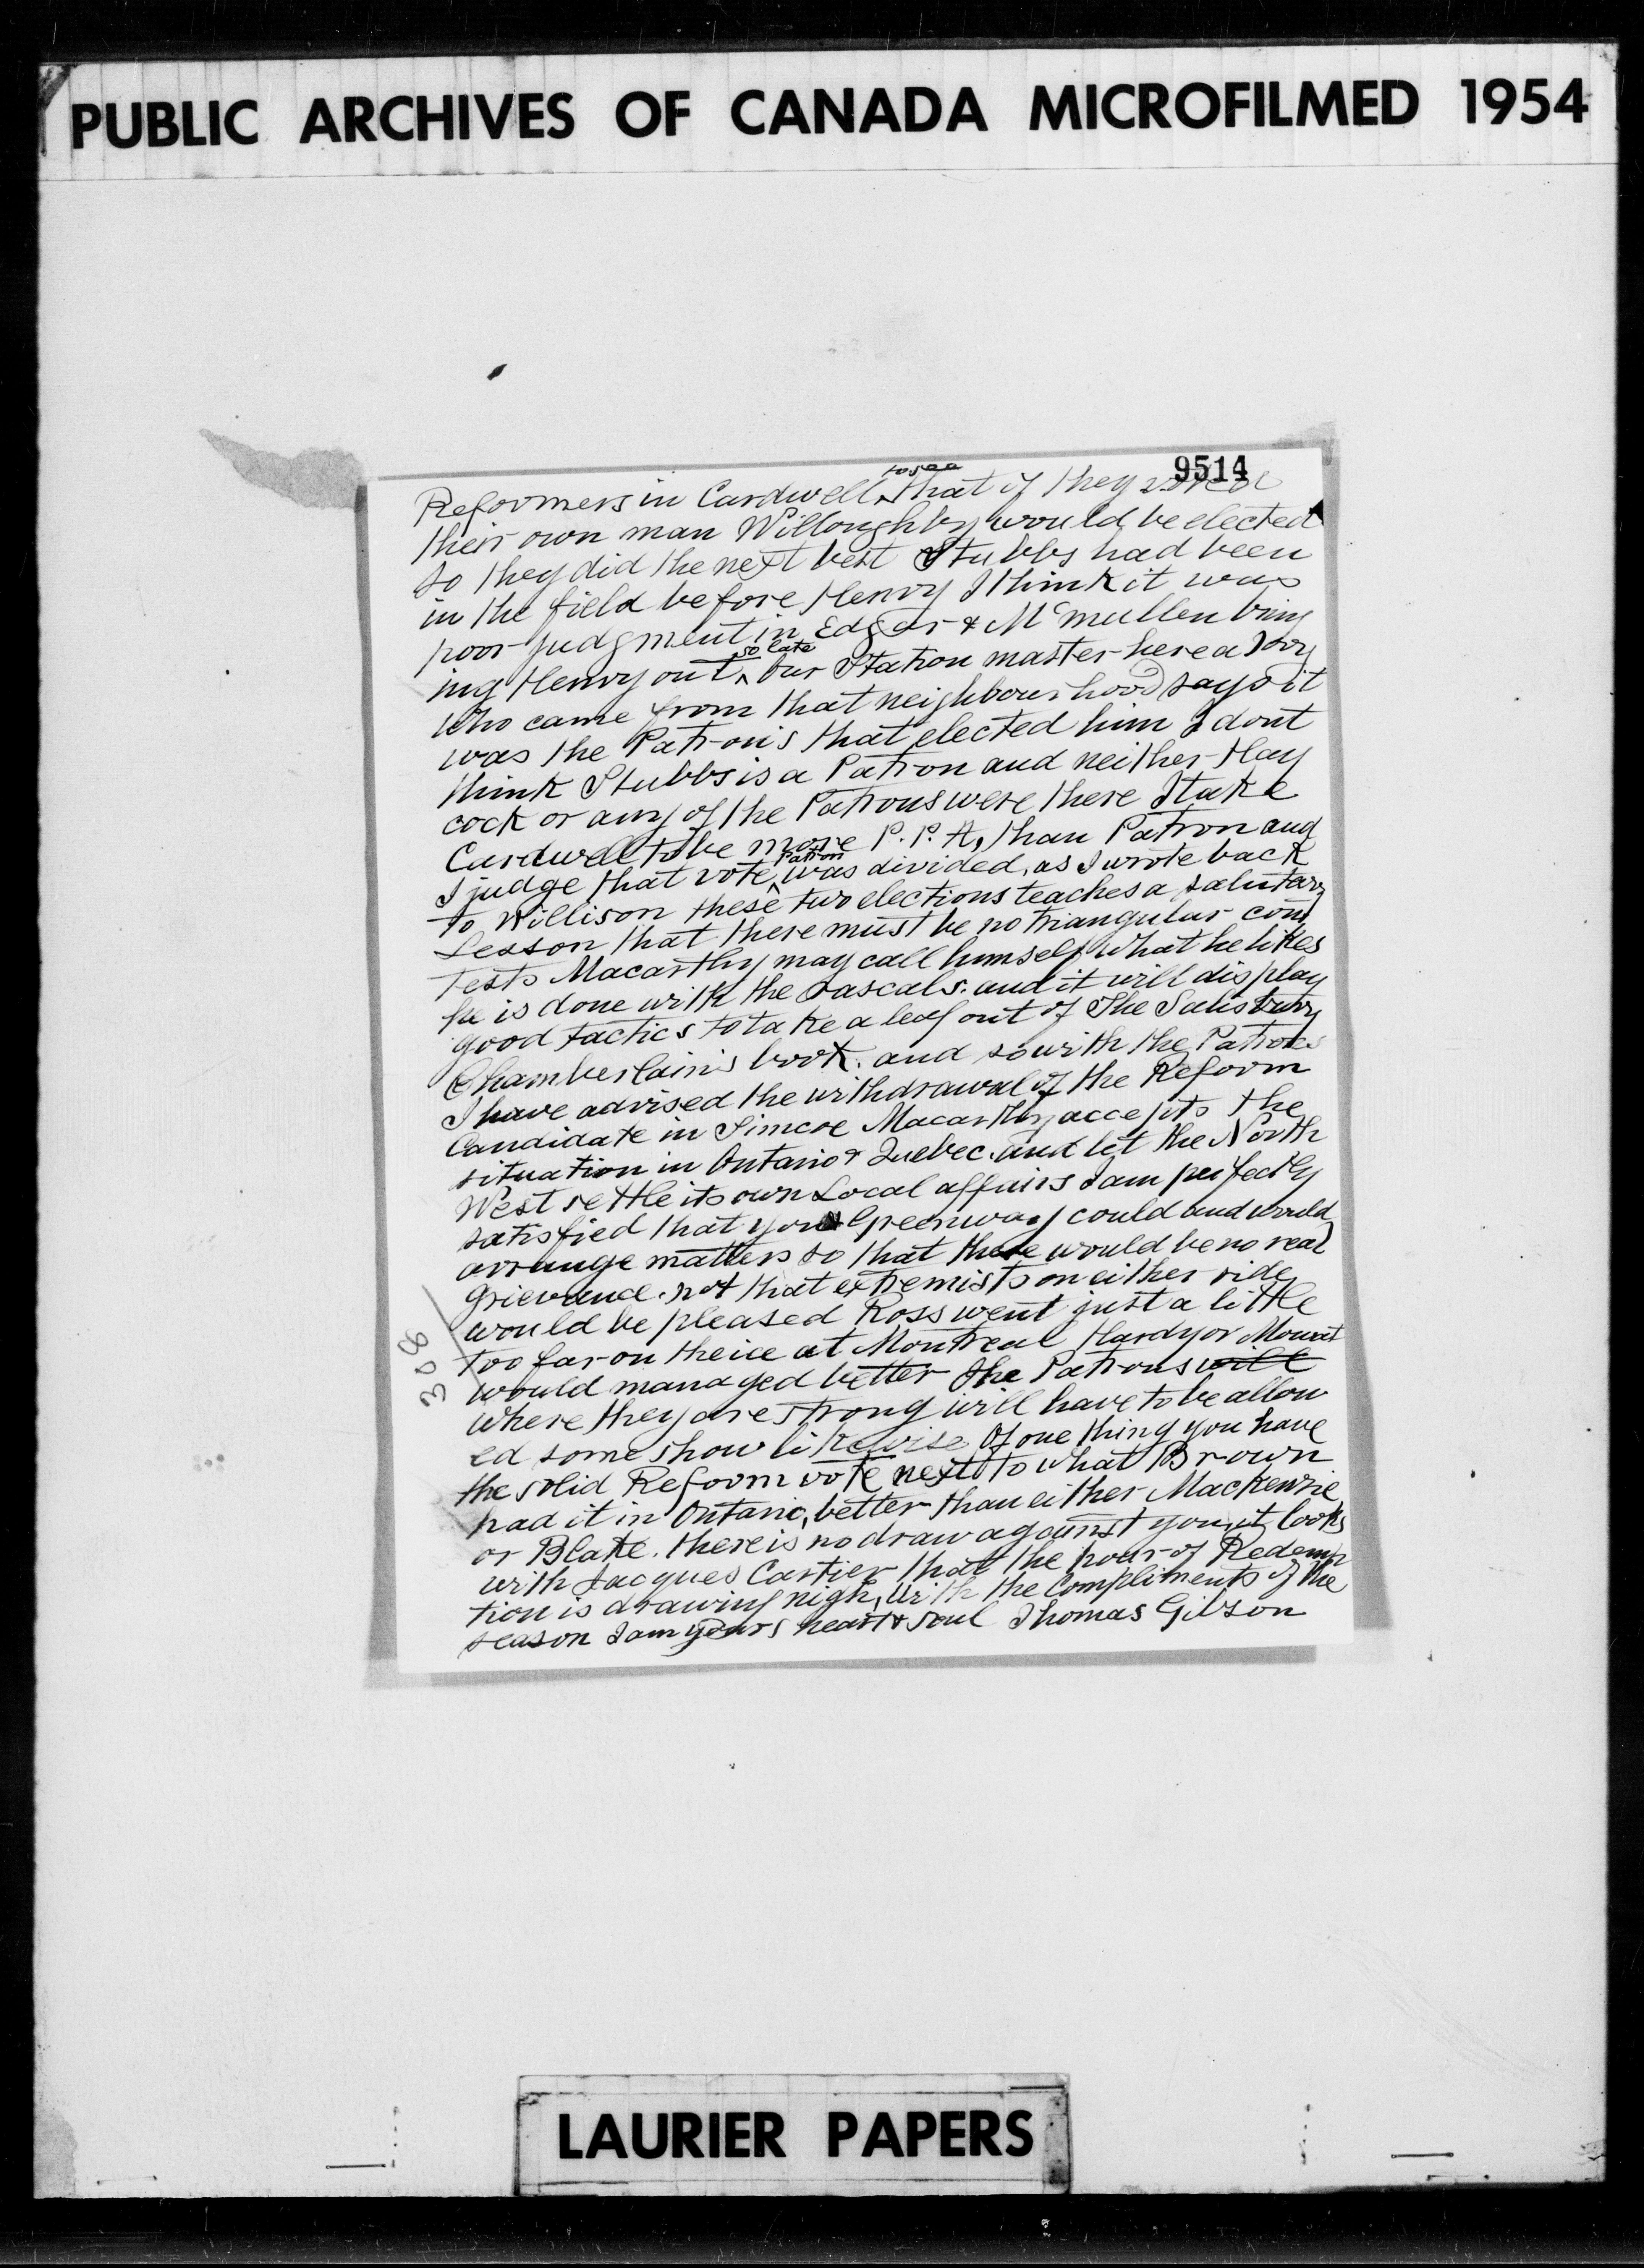 PUBLIC ARCHIVES OF CANADA MICROFILMED 1954
9514
Reformers in Cardwell to see that if they voted
their own man Willoughby would be elected
so they did the next best Stubbs had been
in the field before Henry I think it was
poor judgment in Edgar & McMullen bring
ing Henry out so late our Station master here a Tory
who came from that neighbourhood says it
was the Patrons that elected him I dont
think Stubbs is a Patron and neither Hay
cock or any of the Patrons were there I take
Cardwell to be more P.P.A, than Patron and
I judge that vote Patron was divided, as I wrote back
to Willison these two elections teaches a salutary
Lesson that there must be no triangular con
tests Macarthy may call himself what he likes
he is done with the rascals. and it will display
good tactics to take a leaf out of The Salisbury
Chamberlain's book. and so with the Patrons
I have advised the withdrawal of the Reform
Candidate in Simcoe Macarthy accepts the
situation in Ontario & Quebec. and let the North
West settle its own Local affairs I am perfectly
satisfied that you & Greenway could and would
arrange matters so that there would be no real
grievance. not that extremists on either side
would be pleased Ross went just a little
too far on the ice at Montreal Hardy or Mowat
would managed better The Patrons will
where they are strong will have to be allow
ed some show likewise Of one thing you have
the solid Reform vote next to what Brown
had it in Ontario, better than either Mackenzie
or Blake. there is no draw against you, it looks
with Jacques Cartier that the hour of Redemp
tion is drawing nigh, With the Compliments of the
season I am yours heart & soul Thomas Gibson
308
LAURIER PAPERS